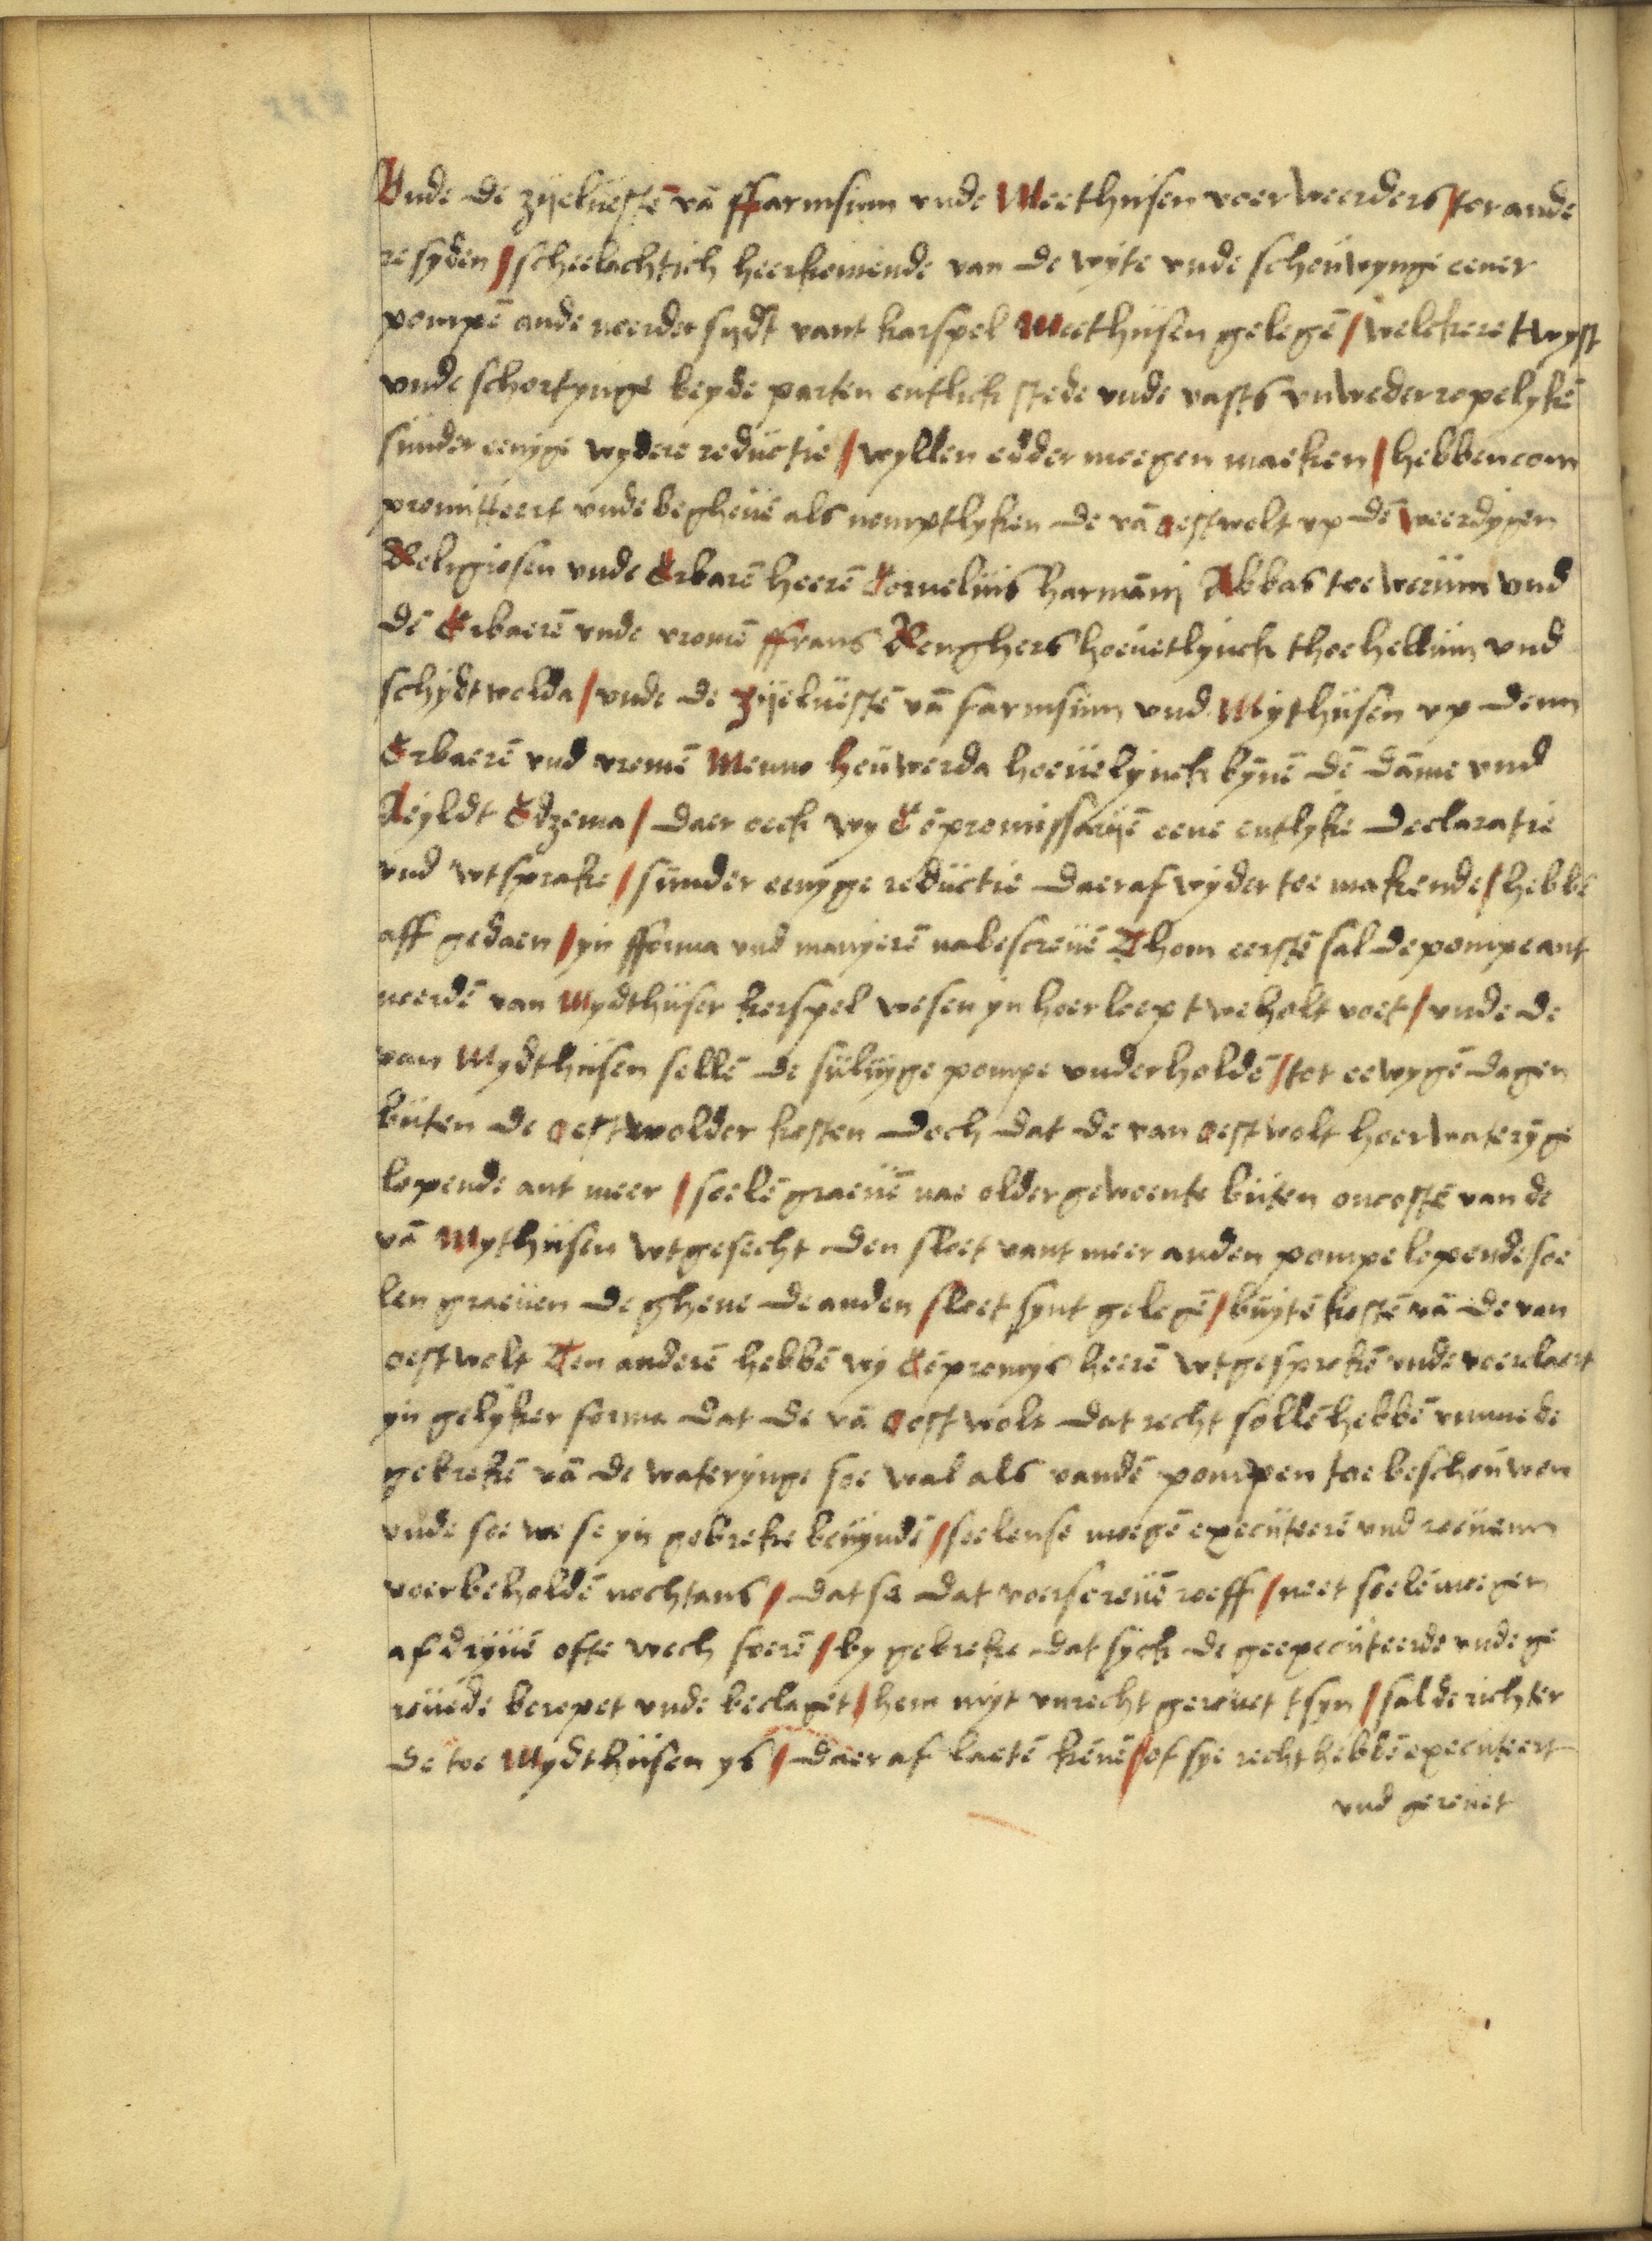 Unde de zijeluestē vā ffarmsum unde Meethusen voerweerders / ter ande
re syden / scheelachtich heerkomende van de wyte unde schouwynge eener
pompē ande noerder sydt vant karspel Meethusen gelegē / welckere twyst
unde schortynge beyde parten entlick stede unde vasts unwederropelykē
sunder eenyge wydere reductie / wyllen edder moegen maeken / hebben com
promitteert unde begheuē als nemptlyken de vā oestwolt up dē weerdygen
Religiosen unde Erbarē heerē Cornelius harmānj Abbas toe werum und
dē Erbaerē unde vromē ffrans Renghers hoeuetlynck thoe hellum und
schydtwolda / unde de zijeluestē vā farmsum und Mythusen up denn
Erbaerē und vromē Menno heuwerda hoeuelynck bynē dē dāme und
Aeyldt Edzema / daer oeck wy Cōpromissarijē eene entlyke declaratie
und wtsprake / sunder eenyge reductie daeraf wyder toe makende / hebbē
aff gedaen / yn fforma und manyerē nabescreuē Thom eerstē sal de pompe ant
noerdē van Mydthuser kerspel wesen yn hoer loep twe holt voet / unde de
van Mydthusen sollē de suluyge pompe underholdē / tot eewygē dagen
buten de oestwolder kosten doch dat de van oestwolt hoer waterỹge
lopende ant meer / soelē graeuē nae older gewoente buten oncostē van de
vā Mythusen wtgesecht den sloet vant meer anden pompe lopende soe
len graeuen de ghene de anden sloet synt gelegē / buytē kostē vā de van
oestwolt Ten anderē hebbē wy Cōpromys heerē wtgesprokē unde voerclaert
yn gelyker forma dat de vā oestwolt dat recht sollē hebbē umme de
gebrekē vā de waterynge soe wal als vandē pompen toe beschouwen
unde soe we se yn gebreke beuyndē / soelense moegē executeerē und roeuenn
voerbeholdē nochtans / dat se dat voerscreuē roeff / neet soelē moegen
afdryuē ofte wech foerē / by gebreke dat syck de geexecuteerde unde ge
rouede beropet unde beclaget / hem myt unrecht gerouet tsyn / sal de richter
de toe Mydthusen ys / daeraf laetē kenē / of sye recht hebbē executeert
und gerouet